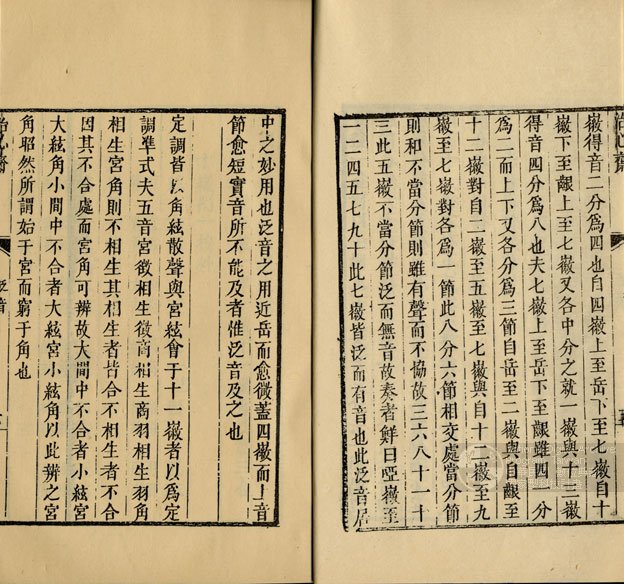 徽得音二分爲四也自四徽上至岳下至七徽自十
徽下至齦上至七徽又各中分之就一徽與十三徽
得音四分爲八也夫七徽上至岳下至齦雖四一分
爲二而上下又各分爲三節自岳至二徽與自齦至
十二徽對自二徽至五徽至七徽與自十二徽至九
徽至七徽對各爲一節此八分六節相交處當分節
則和不當分節則雖有聲而不協故三六八十一十
三此五徽不當分節泛而無音故奏者鮮曰啞徽至
一二四五七九十此七徽皆泛而有音也此泛音居
中之妙用也泛音之用近岳而愈微蓋四徽而上音
節愈短實音所不能及者惟泛音及之也
定調皆以角絃散聲與宮絃會于十一徽者以爲定
調準式夫五音宮徵相生徵商相生商羽相生羽角
相生宮角則不相生其相生者皆合不相生者不合
因其不合處而宮角可辨故大間中不合者小絃宮
大絃角小間中不合者大絃宮小絃角以此辨之宮
角昭然所謂始于宮而窮于角也